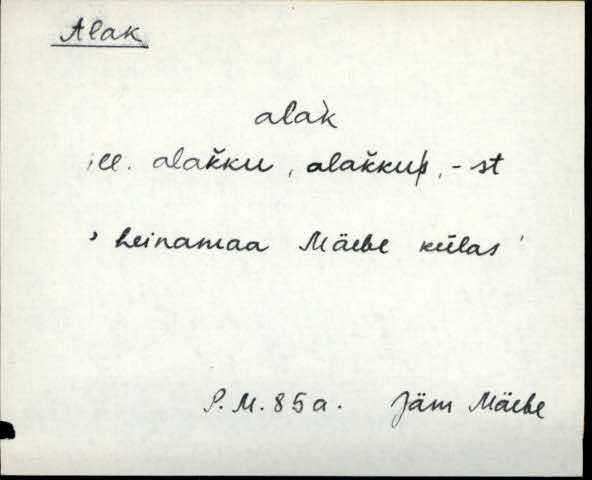 Alak
alak̆
ill. alak̆ku, alakkuſt, -st
' heinamaa Mäebe külas '
P.M. 85a. Jäm Mäebe